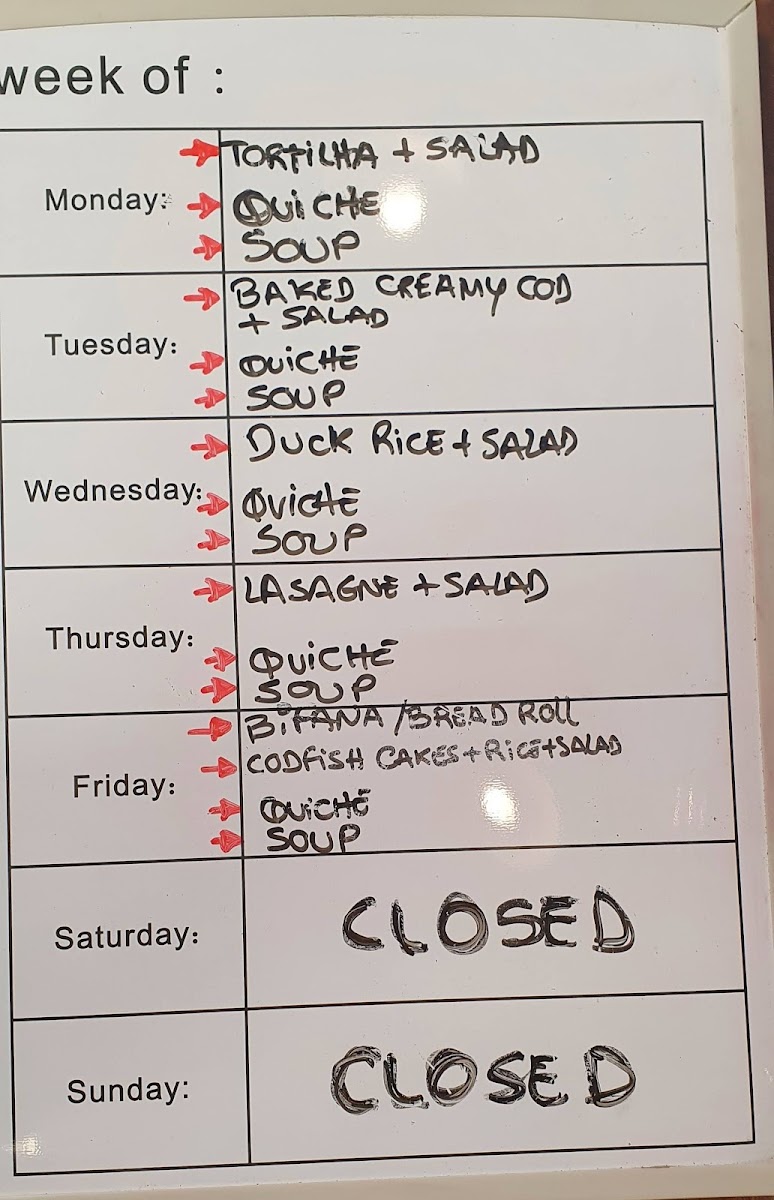 week of :
Monday:
TORTILHA + SALAD
QUICHE
SOUP
Tuesday:
BAKED CREAMY COD
+ SALAD
QUICHE
SOUP
Wednesday:
DUCK RICE + SALAD
QUICHE
SOUP
Thursday:
LASAGNE + SALAD
QUICHE
SOUP
Friday:
BIFANA / BREAD ROLL
CODFISH CAKES + RICE + SALAD
QUICHE
SOUP
Saturday:
CLOSED
Sunday:
CLOSED